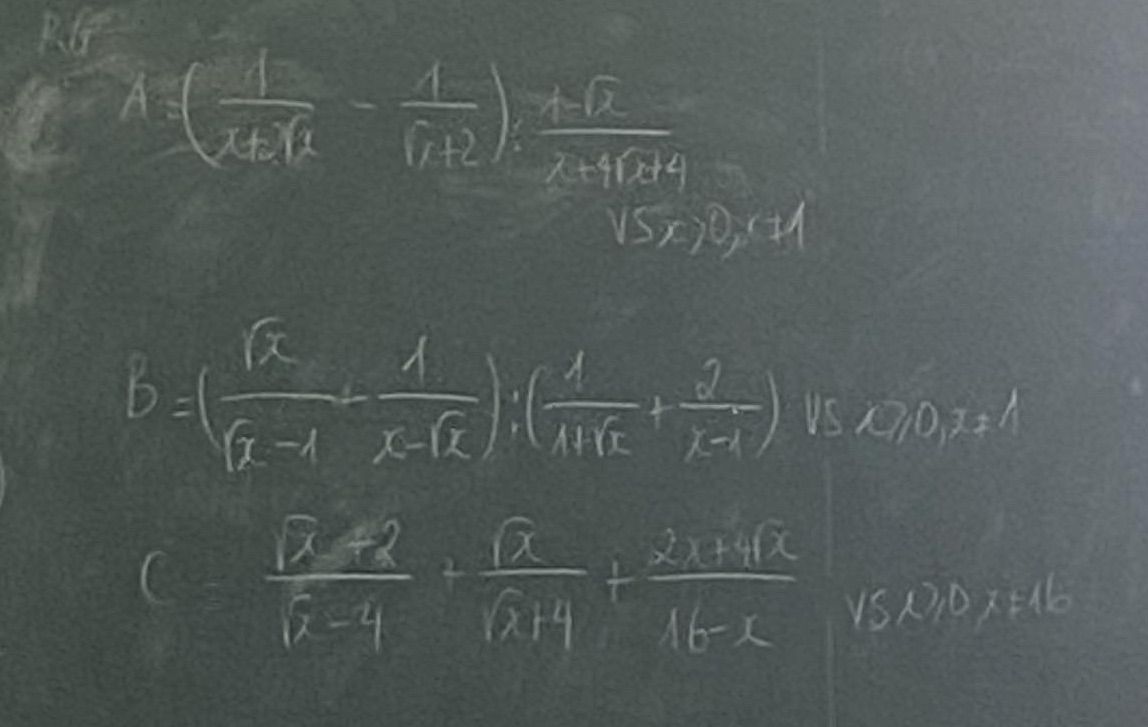 RG
A = (1/(x+2√x) - 1/(√x+2)) : (1-√x)/(x+4√x+4)
VS x>0, x≠1
B = (√x/(√x-1) - 1/(x-√x)) : (1/(1+√x) + 2/(x-1)) VS x≥0, x≠1
C = (√x+2)/(√x-4) - √x/(√x+4) + (2x+4√x)/(16-x) VS x≥0, x≠16